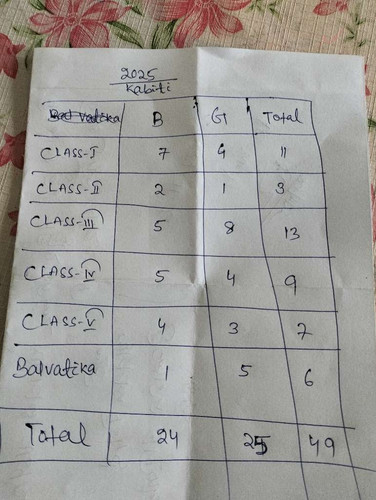 2025
Kabiti
Balvatika B G Total
CLASS-I 7 4 11
CLASS-II 2 1 3
CLASS-III 5 8 13
CLASS-IV 5 4 9
CLASS-V 4 3 7
Balvatika 1 5 6
Total 24 25 49